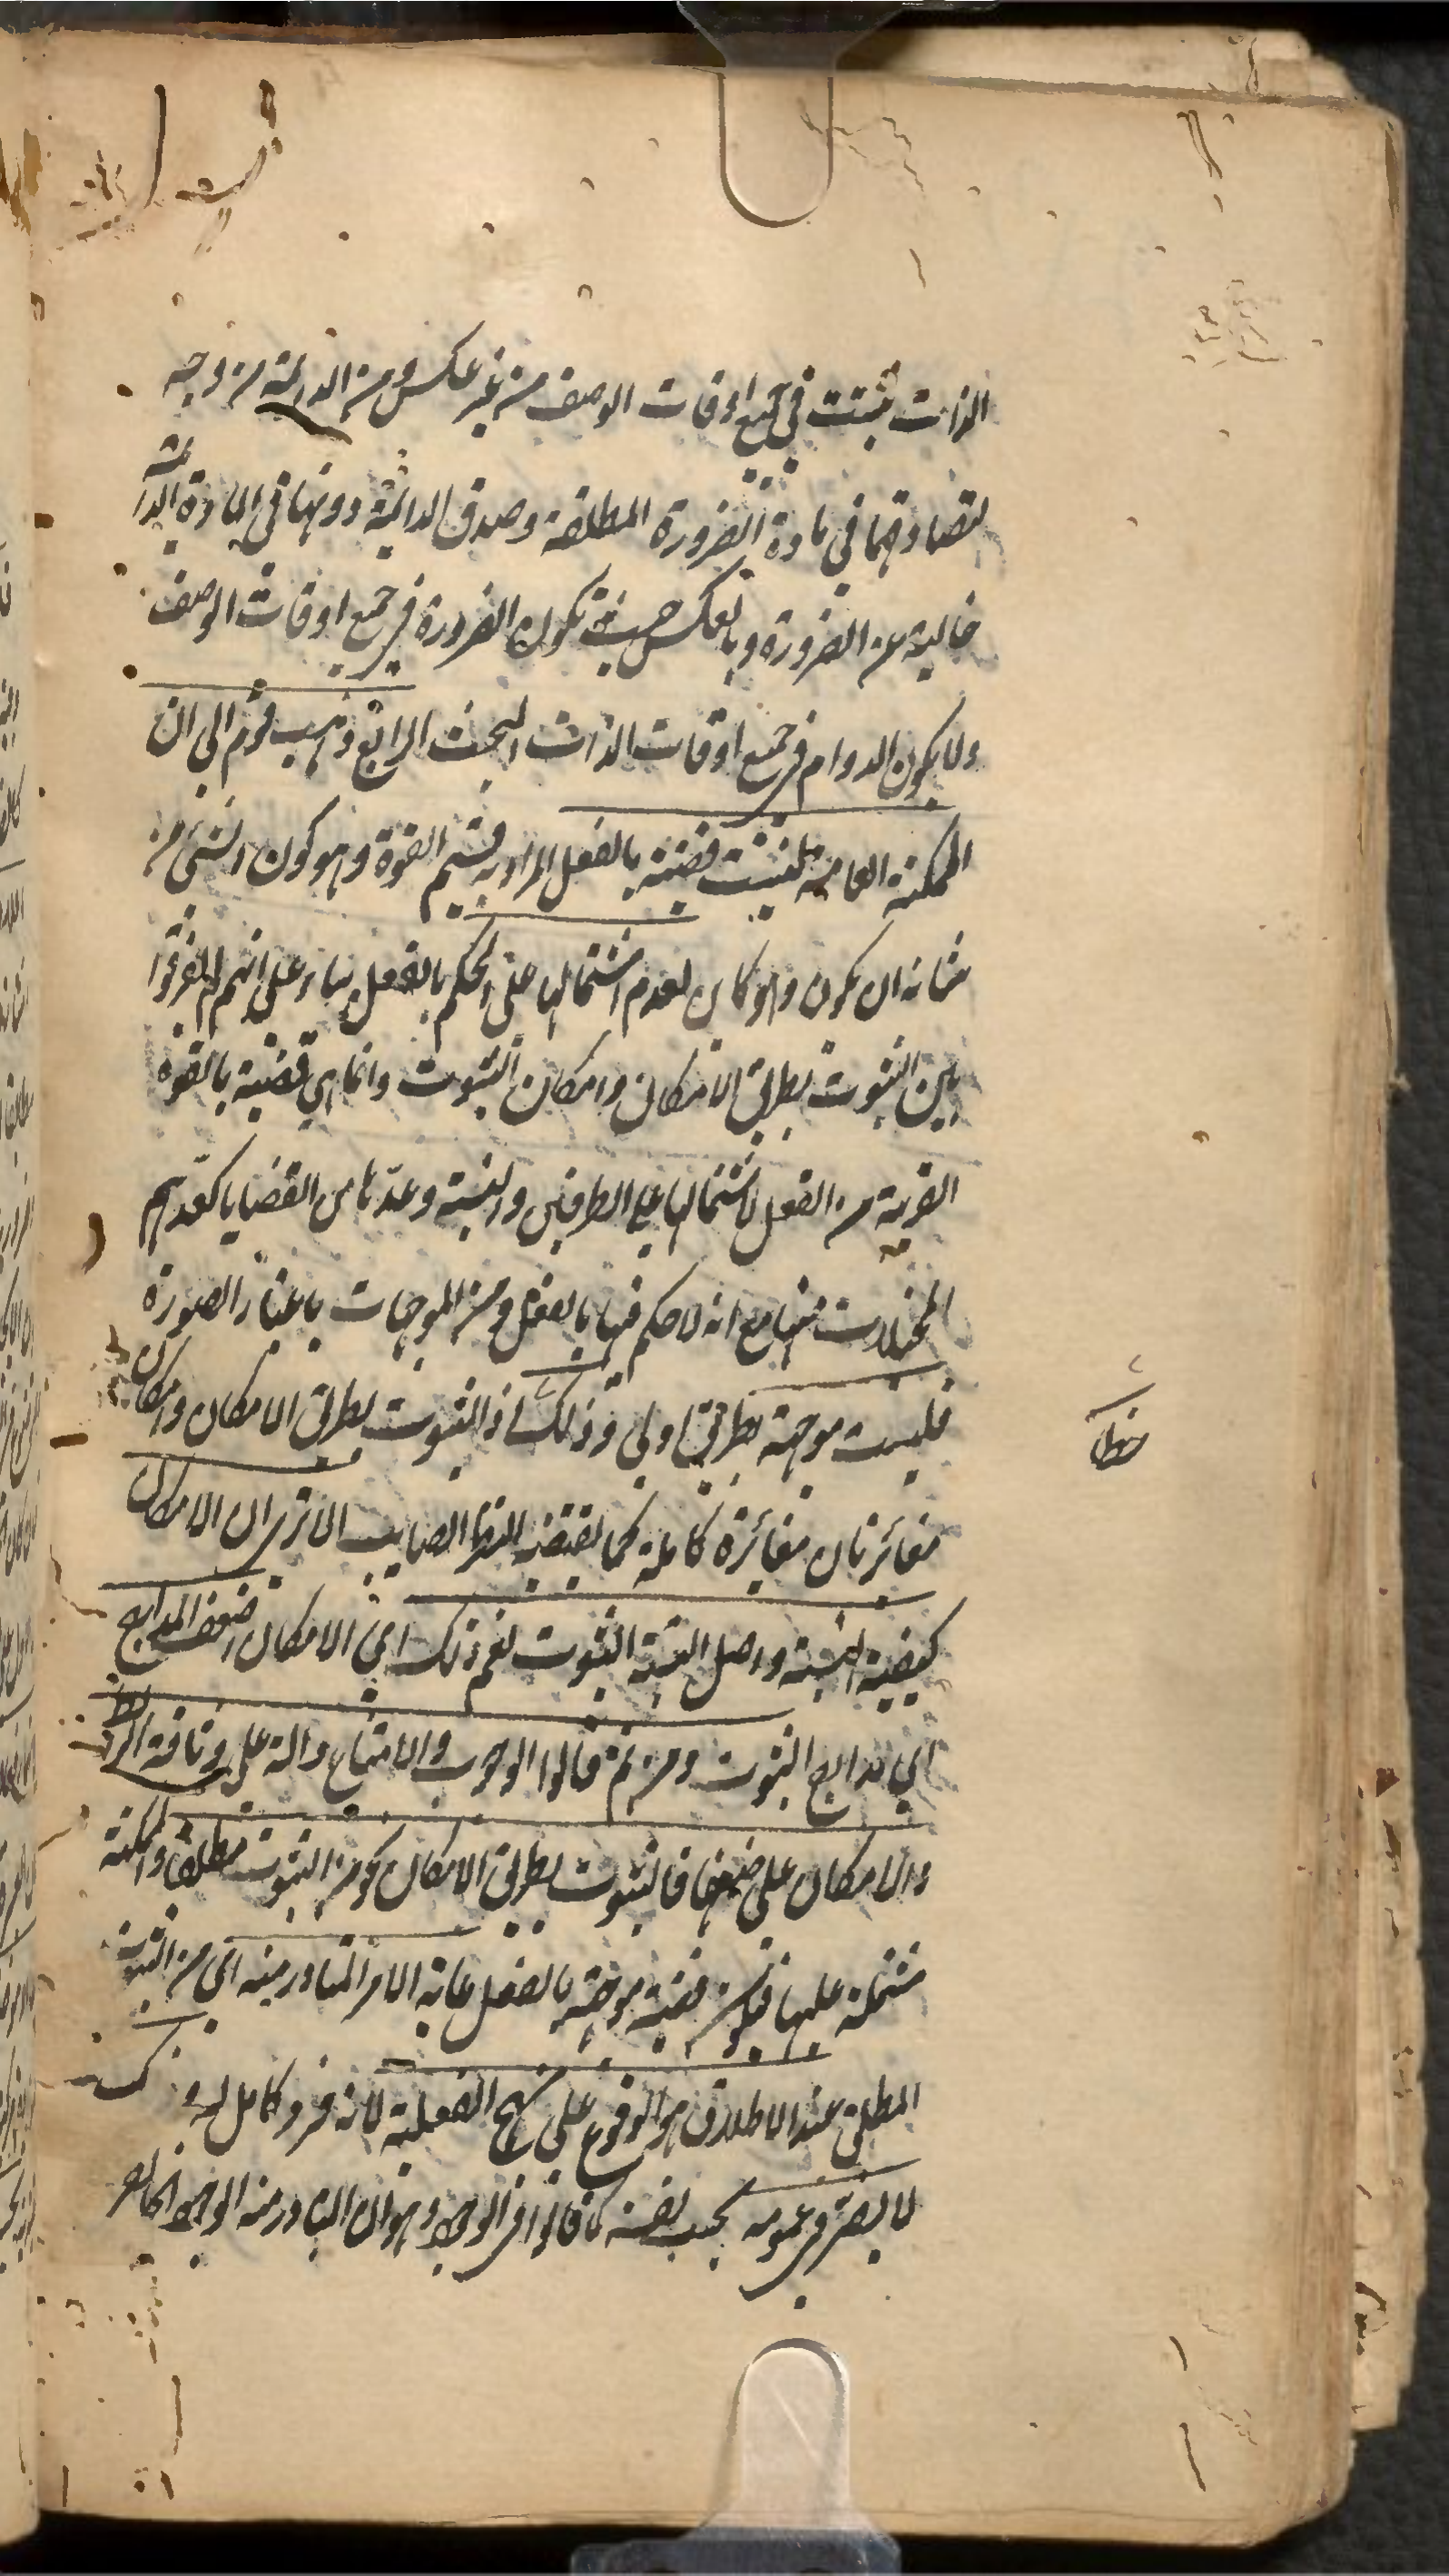 الذات ثبتت في جميع اوقات الوصف من غير عكس ومن الدائمة من وجه
لتصادقهما في مادة الضرورة المطلقة وصدق الدائمة دونها في المادة الدائمة
خالية عن الضرورة وبالعكس حيث تكون الضرورة في جميع اوقات الوصف
ولا يكون الدوام في جميع اوقات الذات البحث الرابع ذهب قوم الى ان
الممكنة العامة ليست قضية بالفعل المراد به قسيم القوة وهو كون الشيء من
شانه ان يكون وهو كائن لعدم اشتمالها على الحكم بالفعل بناء على انهم لم يفرقوا
بين الثبوت بطريق الامكان وامكان الثبوت وانما هي قضية بالقوة
القريبة من الفعل لاشتمالها على الطرفين والنسبة وعدّها من القضايا كعدّهم
المخيلات منها مع انه لا حكم فيها بالفعل ومن الموجهات باعتبار الصورة
فليست موجهة بطريق اولى وذلك خطأ اذ الثبوت بطريق الامكان وامكان
متغائرتان مغائرة كاملة كما يقتضيه النظر الصايب الا ترى ان الامكان
كيفية النسبة واصل النسبة الثبوت نعم ذلك اي الامكان اضعف المدارج
اي مدارج الثبوت ومن ثم قالوا الوجوب والامتناع دالة على وثاقة الربط
والامكان على ضعفها فالثبوت بطريق الامكان نحو من الثبوت مطلقا والممكنة
مشتملة عليها فتكون قضية موجهة بالفعل غاية الامر المتبادر منه اي من الثبوت
المطلق عند الاطلاق هو الوقوع على نهج الفعلية لانه فرد كامل له و
لا يضر في عمومه بحسب نفسه كما قالوا في الوجود وهو ان المتبادر منه الوجود الخارجي